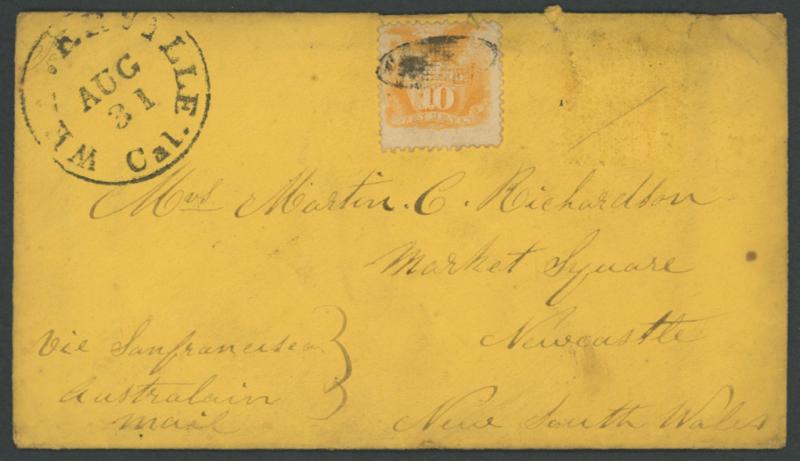 AUG
31
Cal.
10
TEN CENTS
Mrs Martin. C. Richardson
Market Square
Newcastle
New South Wales
Via Sanfrancisco
Australain
mail